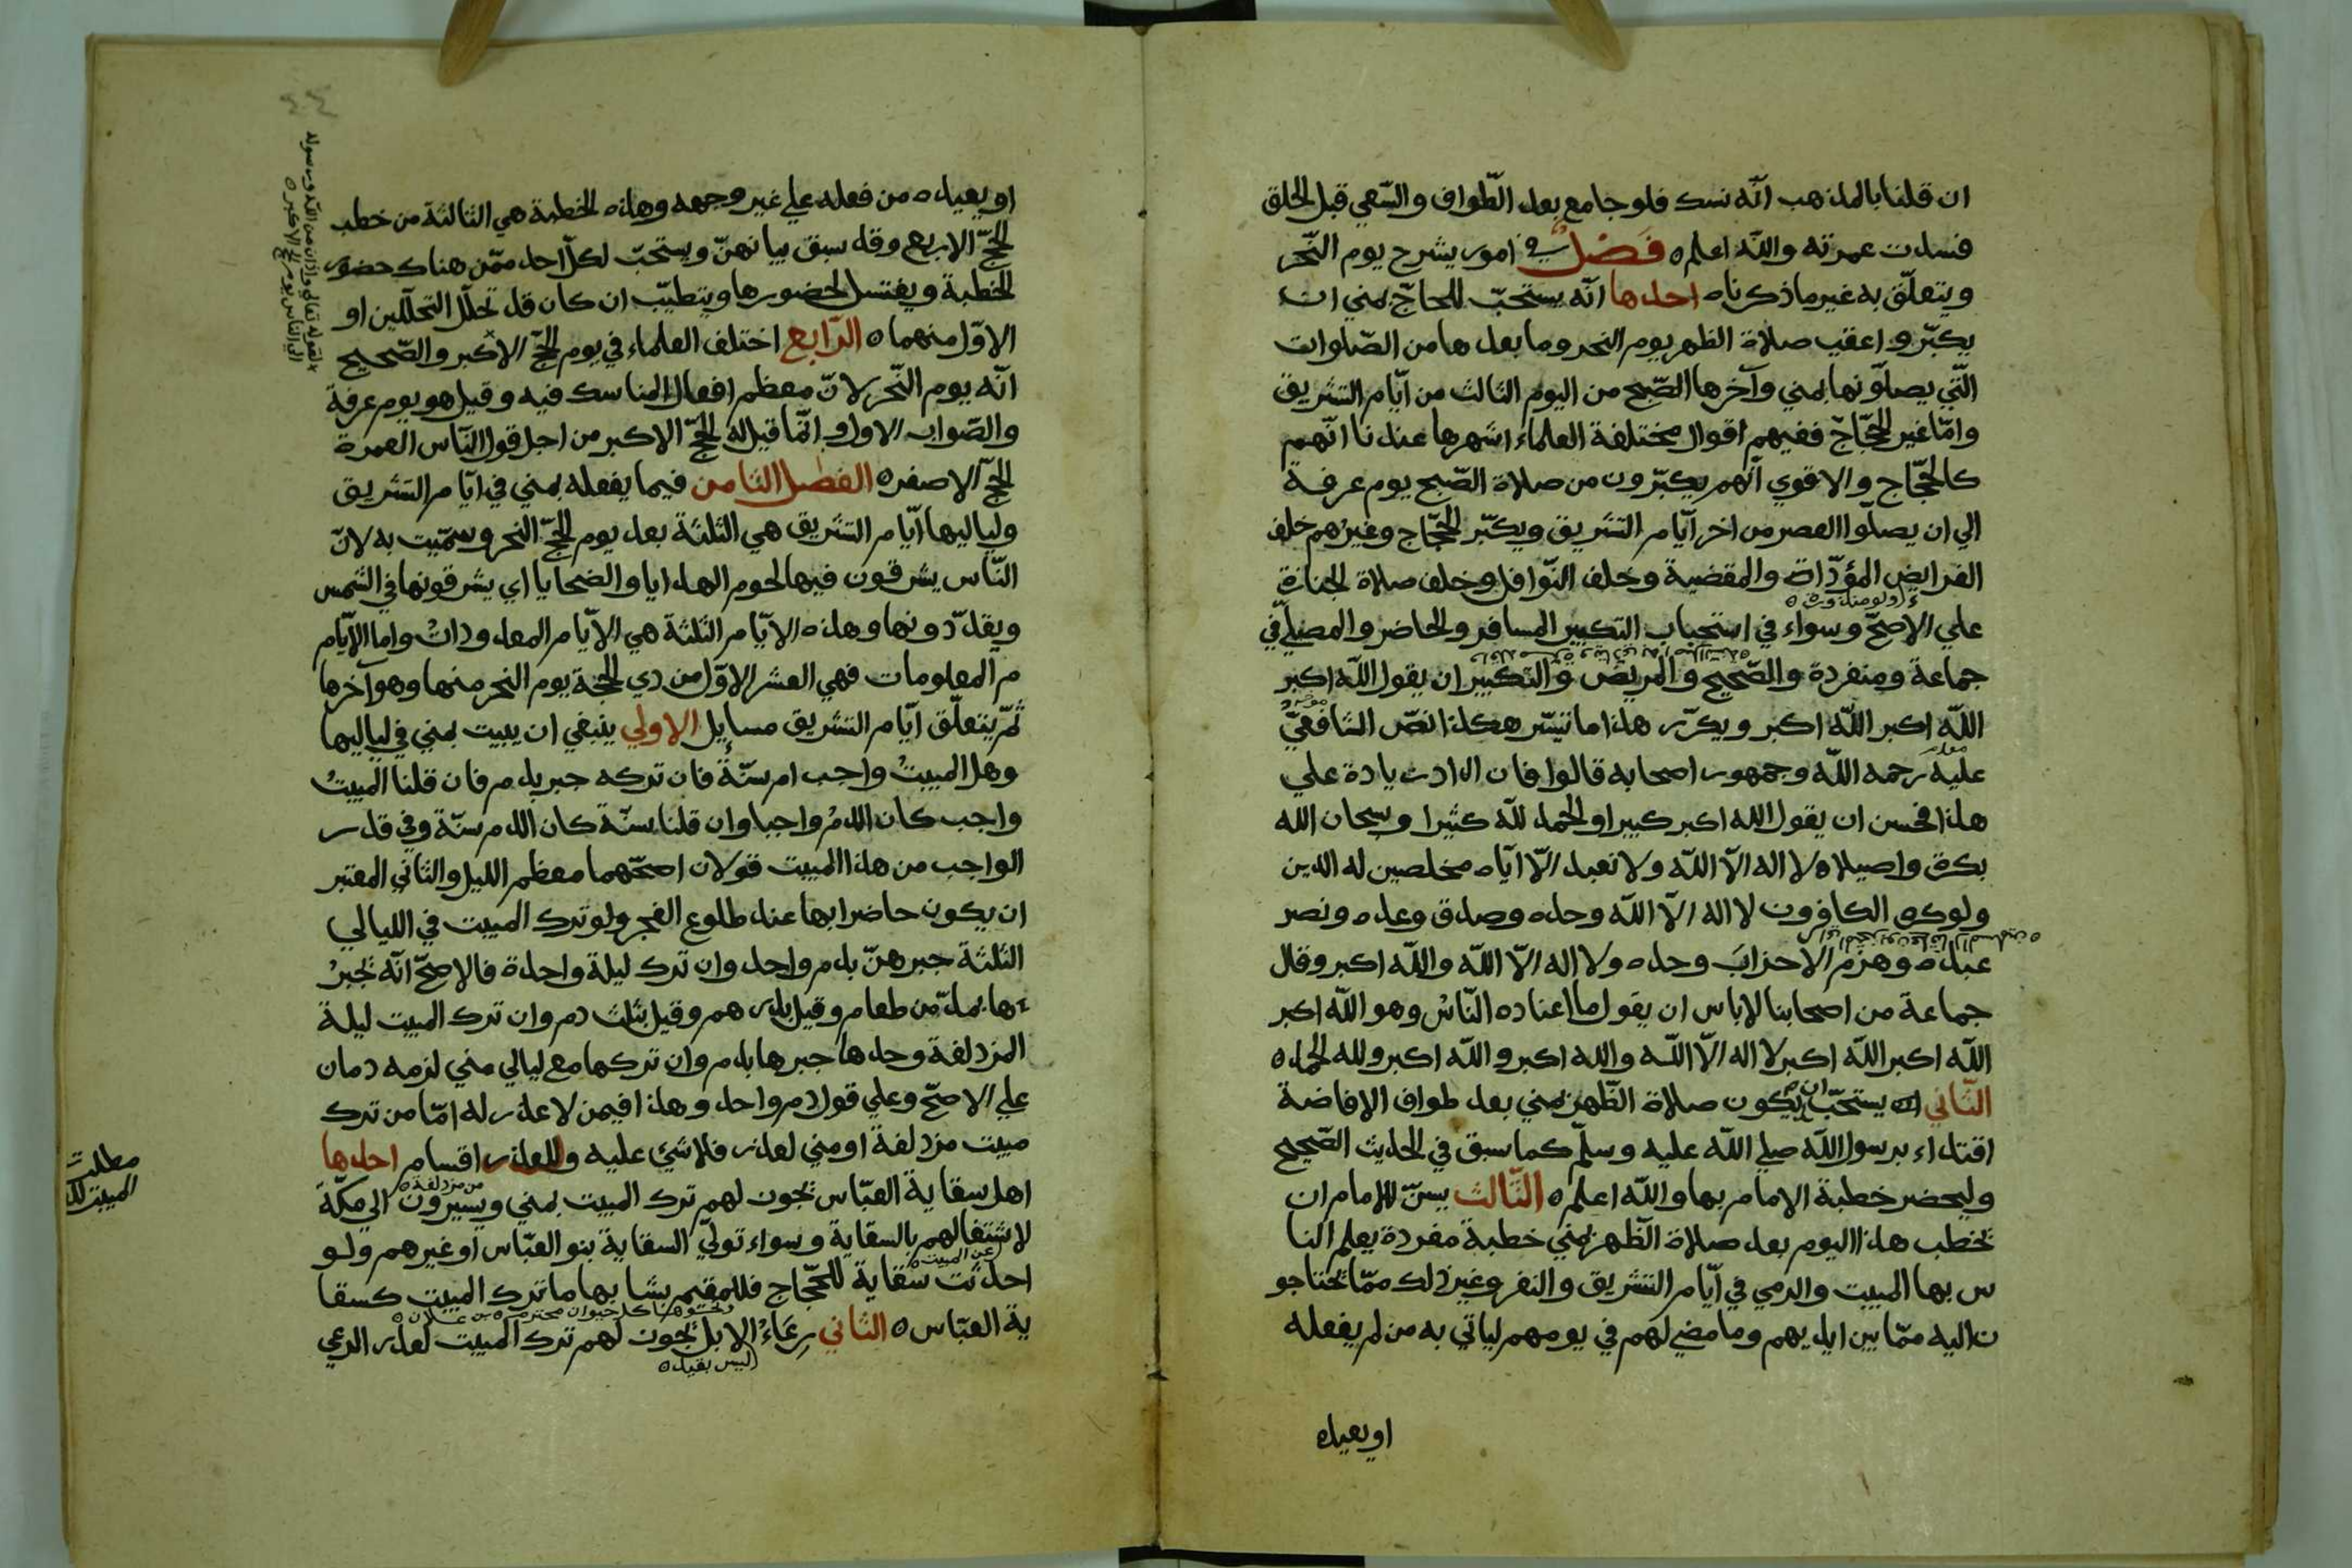 ان قلنا بالمذهب انّه نسك فلو جامع بعد الطّواف والسّعي قبل الحلق
فسدت عمرته والله اعلم ه فَصْلٌ في امور يشرح يوم النّحر
ويتعلّق به غير ما ذكرناه احدها انّه يستحبّ للحاجّ بمني ان
يكبّروا عقب صلاة الظهر يوم النحر وما بعدها من الصّلوات
الّتي يصلّونها بمني وآخرها الصّبح من اليوم الثالث من ايّام التشريق
وامّا غير الحجّاج ففيهم اقوال مختلفة العلماء اشهرها عندنا انّهم
كالحجّاج والاقوي انّهم يكبّرون من صلاة الصّبح يوم عرفة
الي ان يصلّوا العصر من اخر ايّام التشريق ويكبّر الحجّاج وغيرهم خلف
الفرايض المؤدّاة والمقضية وخلف النّوافل وخلف صلاة الجنازة
علي الاصحّ وسواء في استحباب التكبير المسافر والحاضر والمصلّي في
جماعة ومنفردة والصّحيح والمريض والتكبير ان يقول الله اكبر
الله اكبر الله اكبر ويكرّر هذا ما تيسّر هكذا نصّ الشافعيّ
عليه رحمه الله وجمهور اصحابه قالوا فان اراد زيادة علي
هذا فحسن ان يقول الله اكبر كبيرا والحمد لله كثيرا وسبحان الله
بكرة واصيلاه لا اله الاّ الله ولا نعبد الاّ ايّاه مخلصين له الدين
ولو كره الكافرون لا اله الاّ الله وحده وصدق وعده ونصر
عبده وهزم الاحزابَ وحده ولا اله الاّ الله والله اكبر وقال
جماعة من اصحابنا لاباس ان يقول ما اعتاده النّاسْ وهو الله اكبر
الله اكبر الله اكبر لا اله الاّ الله والله اكبر والله اكبر ولله الحمد ه
الثّاني يستحبّ ان يكون صلاة الظّهر بمني بعد طواف الافاضة
اقتداء برسول الله صلي الله عليه وسلّم كما سبق في الحديث الصّحيح
وليحضر خطبة الامام بها والله اعلم ه الثّالث يسنّ للامام ان
يخطب هذا اليوم بعد صلاة الظّهر بمني خطبة مفردة يعلم النا
س بها المبيت والرمي في ايّام التشريق والنفر وغير ذلك ممّا يحتاجو
ن اليه ممّا بين ايديهم وما مضي لهم في يومهم لياتي به من لم يفعله
او يعيده
او يعيده من فعله علي غير وجهه وهذه الخطبة هي الثالثة من خطب
الحجّ الاربع وقد سبق بيانهنّ ويستحبّ لكلّ احد ممّن هناك حضور
الخطبة ويغتسل لحضورها ويتطيّب ان كان قد تحلّل التحلّلين او
الاوّل منهما ه الرّابع اختلف العلماء في يوم الحجّ الاكبر والصّحيح
انّه يوم النّحر لانّ معظم افعال المناسك فيه وقيل هو يوم عرفة
والصّواب الاول وانّما قيل له الحجّ الاكبر من اجل قول النّاس العمرة
الحجّ الاصغر ه الفصل الثّامن فيما يفعله بمني في ايّام التشريق
ولياليها ايّام التشريق هي الثّلثة بعد يوم الحجّ النحر وسمّيت به لانّ
النّاس يشرقون فيها لحوم الهدايا والضحايا اي يشرقونها في الشّمس
ويقدّدونها وهذه الايّام الثّلثة هي الايّام المعدوداتْ واما الايّام
م المعلومات فهي العشر الاوّل من ذي الحجّة يوم النحر منها وهو آخرها
ثمّ يتعلّق ايّام التشريق مسايل الاولي ينبغي ان يبيت بمني في لياليها
وهل المبيتُ واجب ام سنّة فان تركه جبر بدم فان قلنا المبيتُ
واجب كان الدمُ واجبا وان قلنا سنّة كان الدم سنّة وفي قدر
الواجب من هذا المبيت قولان اصحّهما معظم الليل والثاني المعتبر
ان يكون حاضرا بها عند طلوع الفجر ولو ترك المبيت في الليالي
الثّلثة جبرهنّ بدم واحد وان ترك ليلة واحدة فالاصحّ انّه يجبرْ
ها بمدّ من طعام وقيل بدرهم وقيل بثلث دم وان ترك المبيت ليلة
المزدلفة وحدها جبرها بدم وان تركها مع ليالي مني لزمه دمان
علي الاصحّ وعلي قول دم واحد وهذا فيمن لا عذر له امّا من ترك
مبيت مزدلفة او مني لعذر فلا شيئ عليه وللعذر اقسام احدها
اهل سقاية العبّاس يجوز لهم ترك المبيت بمني ويسيرون الي مكّة
لاشتغالهم بالسقاية وسواء تولّي السقاية بنو العبّاس او غيرهم ولو
احدثت سقاية للحجّاج فللمقيم بشانها ما ترك المبيت كسقا
ية العبّاس ه الثاني رِعَاءُ الابل يجوز لهم ترك المبيت لعذر الرعي
ليس بقيد ه
لقوله تعالي واذان من الله ورسوله
الي الناس يوم الحج الاكبر ه
مطلب